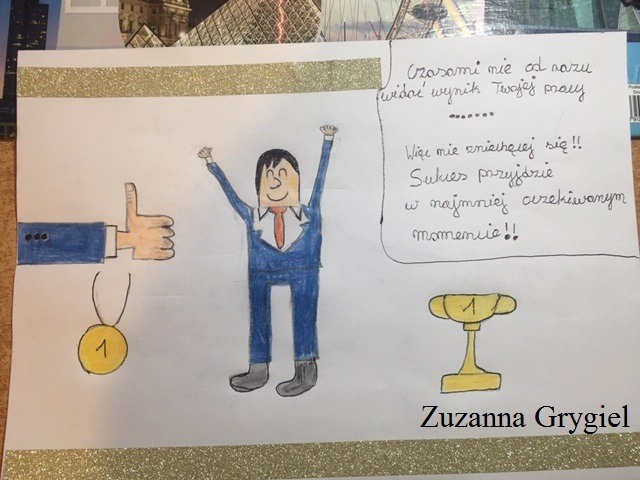 Czasami nie od razu
widać wynik Twojej pracy
.......
Więc nie zniechęcej się!!
Sukces przyjdzie
w najmniej oczekiwanym
momencie!!
1
1
Zuzanna Grygiel